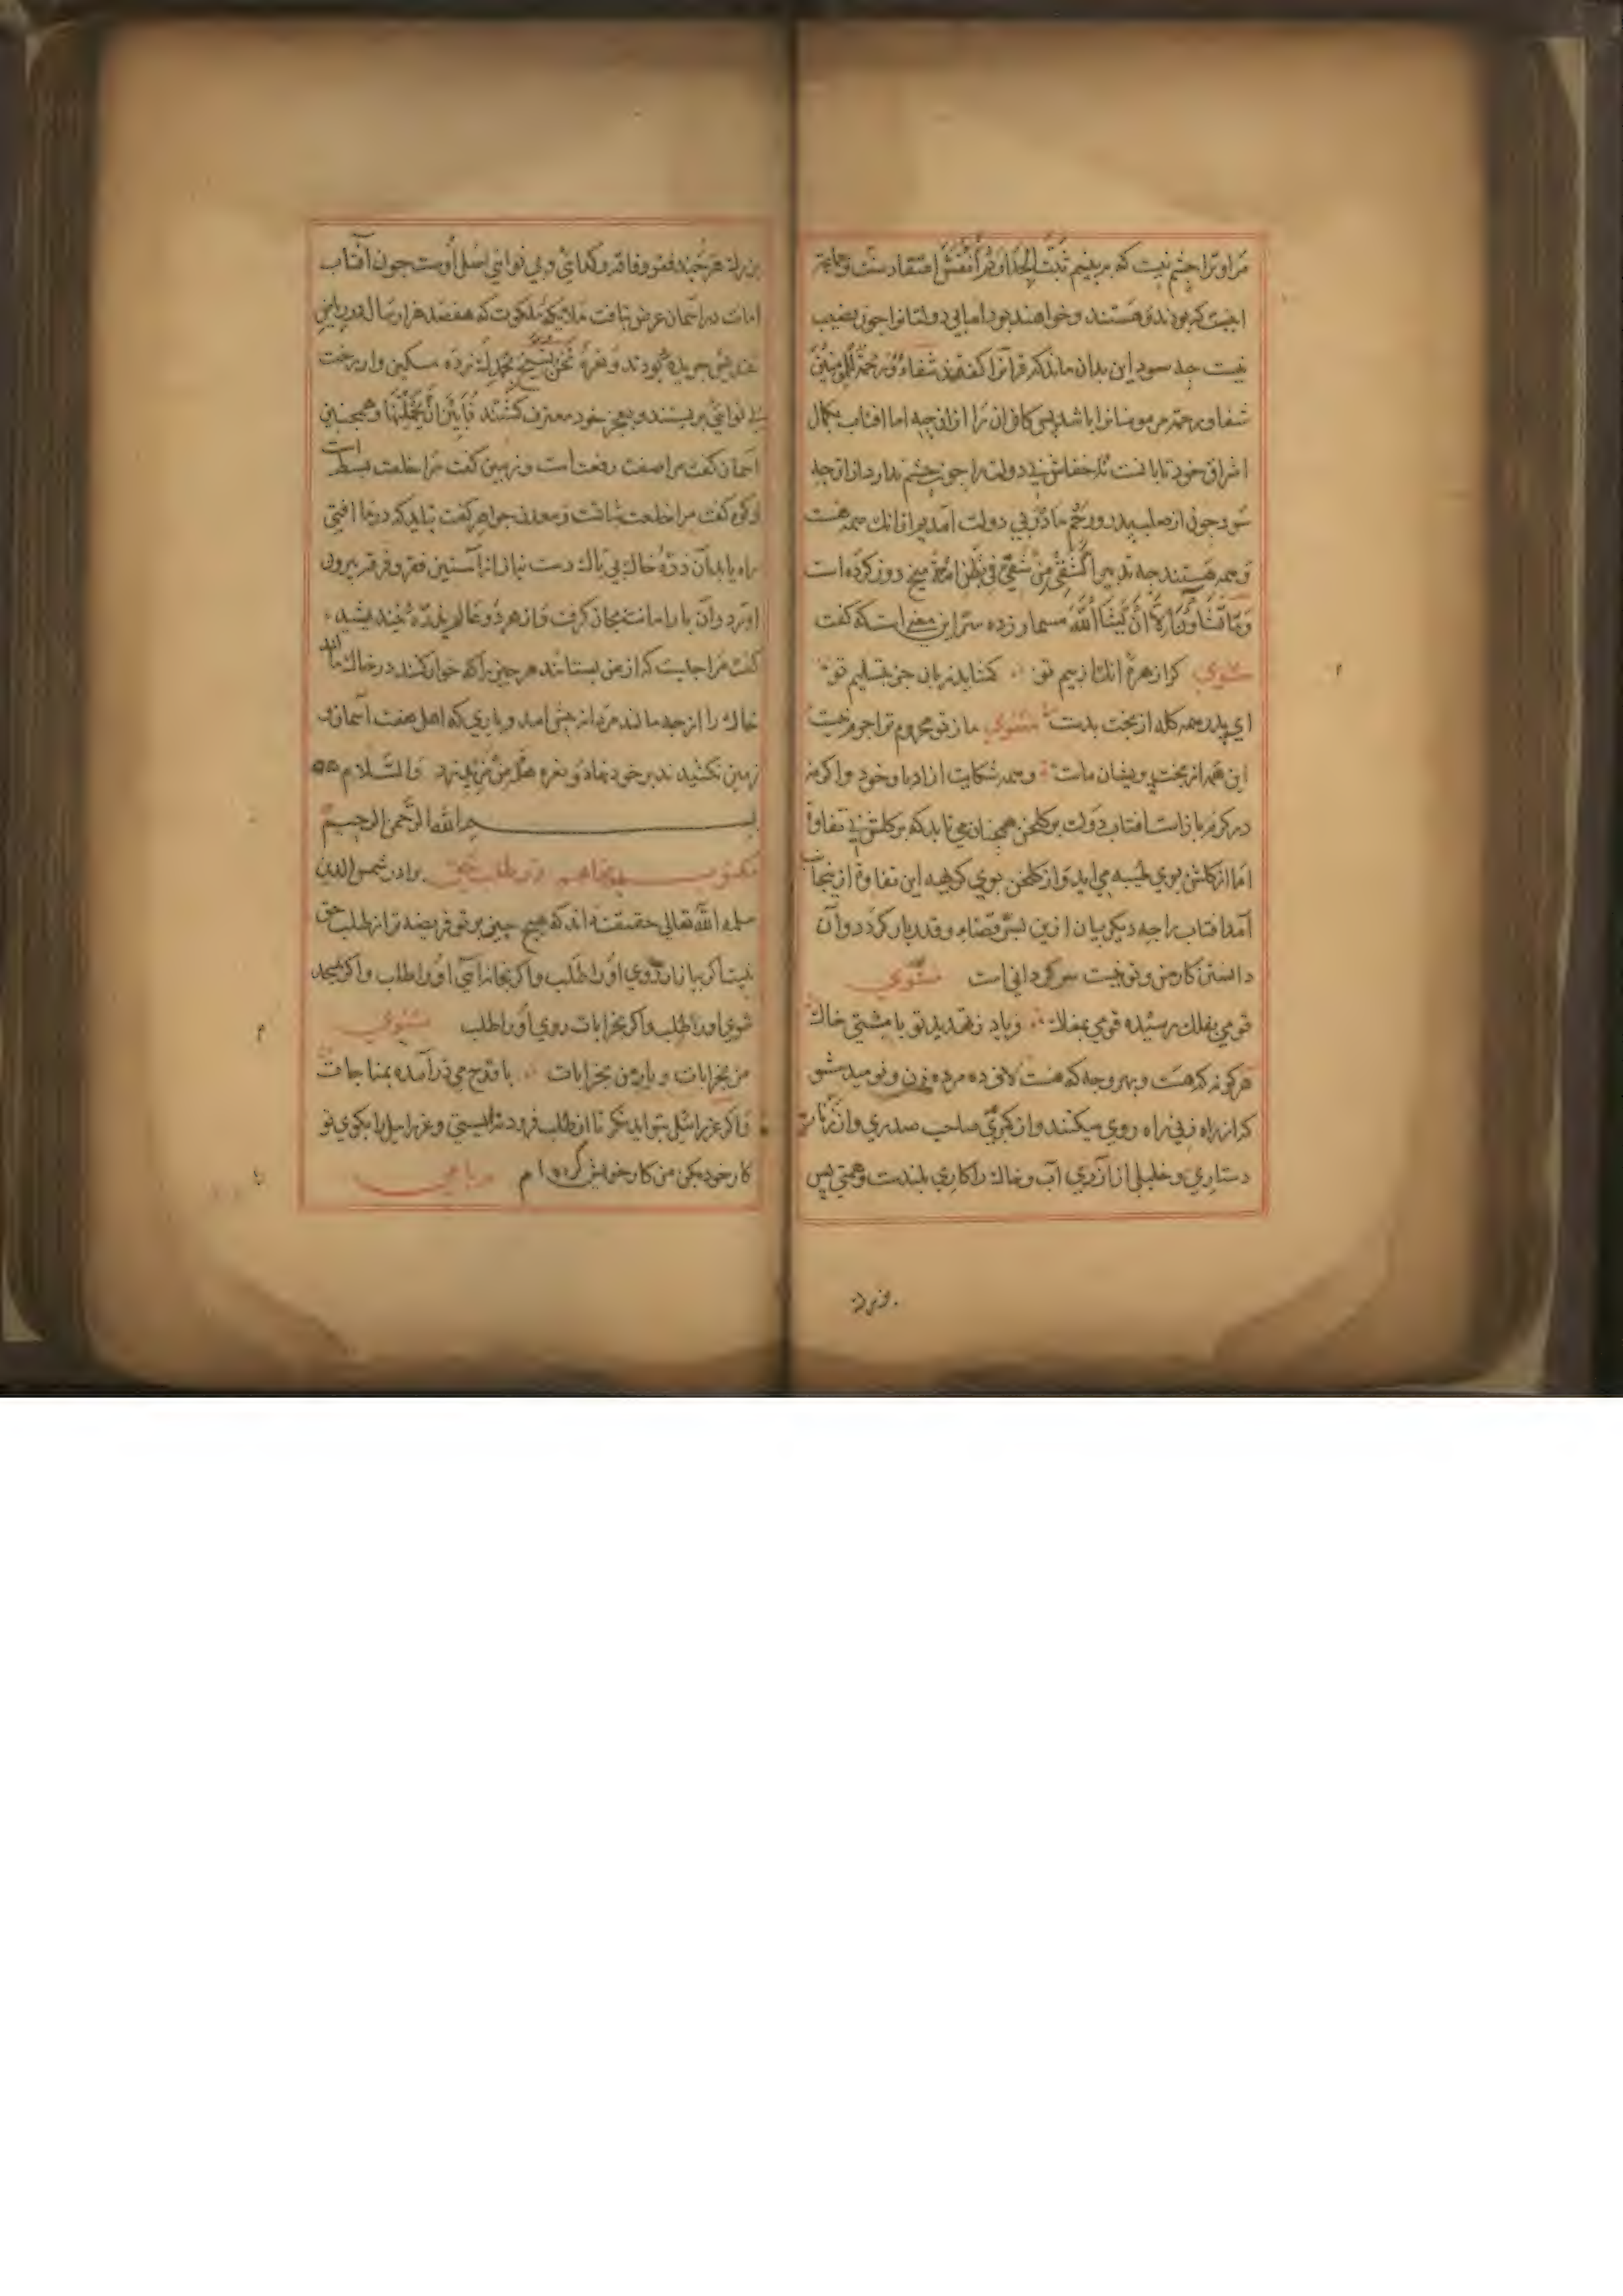 مراو ترا چشم نیست که بربینیم
اینست که بودند و هستند و خواهند بود اما بی دولتانرا چون نصیب
نیست چه سود این بدان ماند که قرآنرا گفتند شفاءٌ ورحمةٌ للمؤمنین
شفا و رحمت مر مومنانرا باشد پس کافران را ازان چه اما افتاب بکمال
اشراق خود تابانست خفاش بی دولت را چون چشم ندارد ازان چه
سود چون از صلب پدر و رحم مادر بی دولت امد
و همه هستند چه تدبیر الشقی من شقی فی بطن امه میخ دوز کرده است
وما تشاؤن الا ان یشاالله مسمار زده ستر این معنی است که گفت
مثنوی کرا زهره انک از بیم تو کشاید زبان جز بتسلیم تو
ای پدر همه کله از بخت بدست مثنوی ما ز تو محروم ترا جرم نیست
این همه از بخت پریشان ماست و همه شکایت از ادبار خود واکرنه
در کرم بازاست افتاب دولت بر کلخن همچنان می تابد که بر کلشن بی تفاوة
اما از کلشن بوی طیبه می اید و از کلخن بوی کریهه این تفاوة ازینجا
آمد افتاب را چه دیکر بیان ازین بسر قضاء و قدر بار کردد و آن
دانستن کار من و تو نیست سر کردانی است مثنوی
قومی بفلک رسیده قومی بمغاک فریاد ز تهدید تو با مشتی خاک
هر کونه که هست و بهر وجه که هست لاف ده مرده زن و نومید مشو
کز از راه زنی راه روی میکنند و از کبری صاحب صدری و از
دستاری و خلیلی از آزری آب و خاک را کاری بلندست و همتی پس
بزرک
بزرک هر چند فقر و فاقه و کدائی و بی نوائی اصل اوست چون آفتاب
امانت در آسمان عرض تافت ملایکه ملکوت که هفصد هزار سال در ریاض
تقدیس چریده بودند و نعره نحن نسبح بحمدک زده مسکین وار رخت
بی نوائی بربستند و بعجز خود معترف کشتند فابین ان یحملنها و همچنین
آسمان کفت مرا صفت رفعت است و زمین کفت مرا خلعت بسطت است
و کوه کفت مرا خلعت ثباتت و معدن جواهر کفت نباید که در ما افتی
راه یابد آن ذره خاک بی باک دست نیاز از آستین فقر و فرقر بیرون
اورد و آن بار امانت بجان کرفت و از هر دو عالم بذره نیندیشید
کفت مرا چیست که از من بستانند هر چیز را که خوار کنند در خاک مالند
خاک را از چه مالند مردانه پیش امد و باری که اهل هفت آسمان و
زمین نکشیدند بر خود نهاد و نعره هل من مزید زد والسلام
بسم الله الرحمن الرحیم
مکتوب پنجاهم در طلب حق برادر شمس الدین
سلمه الله تعالی حقیقت داند که هیچ چیزی بر تو فریضه تر از طلب حق
نیست اکر ببازار روی او را طلب و اکر بخانه آیی او را طلب و اکر بمسجد
شوی او را طلب و اکر بخرابات روی او را طلب مثنوی
من بخرابات و یار من بخرابات با قدح می در آمده بمناجات
و اکر عزرائیل بتو اید نکر تا از طلب فرود نه ایستی و عزرائیل را بکوی تو
کار خود بکن من کار خویش رباعی